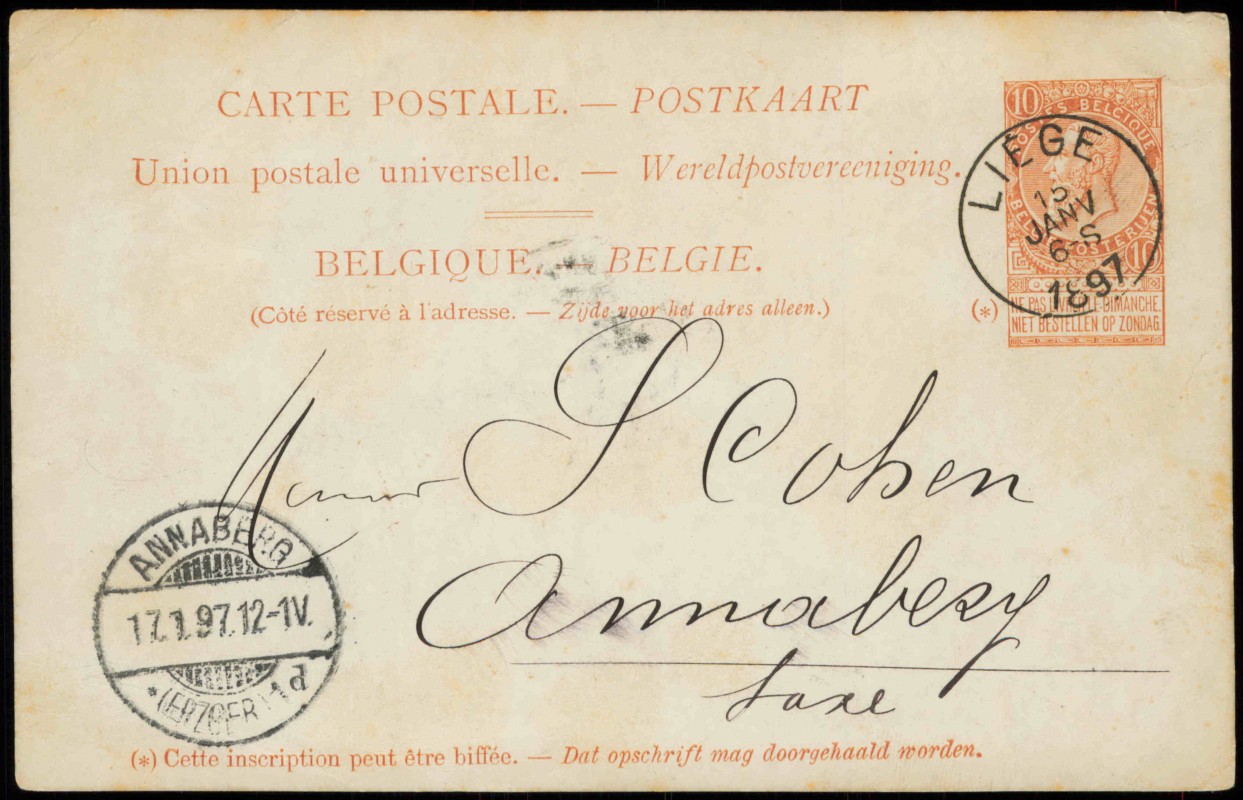 CARTE POSTALE. — POSTKAART
Union postale universelle. — Wereldpostvereeniging.
BELGIQUE. — BELGIE.
(Côté réservé à l'adresse. — Zijde voor het adres alleen.)
(*)
10 10
POSTES BELGIQUE
BELG POSTERIJEN
10
NE PAS LIVRER LE DIMANCHE.
NIET BESTELLEN OP ZONDAG
LIÉGE
15
JANV
6-S
1897
S Cohen
Annaberg
Saxe
ANNABERG
17.1.97.12-1V.
* (ERZGEB.) 1 d
(*) Cette inscription peut être biffée. — Dat opschrift mag doorgehaald worden.